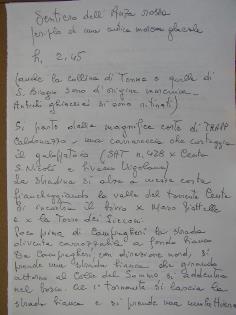 Sentiero dell'
di una antica morena glaciale
h. 2,45
(anche la collina di Tenna e quella di
S. Biagio sono di origine morenica.
Antichi ghiacciai si sono ritirati)
Si parte dalla magnifica corte di TRAPP
Caldonazzo, una carrareccia che costeggia
il (SAT n. 428 x Centa
S. Nicolò e rivese Vigolana)
La stradina si alza a mezza costa
fiancheggiando la valle del torrente Centa
Si incontra il bivio x Maso Giattelle
e x la Torre dei Sicconi.
Poco prima di Campregheri la strada
diventa carrozzabile a fondo bianco
Da Campregheri con direzione nord, si
prende una strada bianca che girando
attorno al Colle del Sommo si addentra
nel bosco. Al 1° tornante si lascia la
strada bianca e si prende una mulattiera